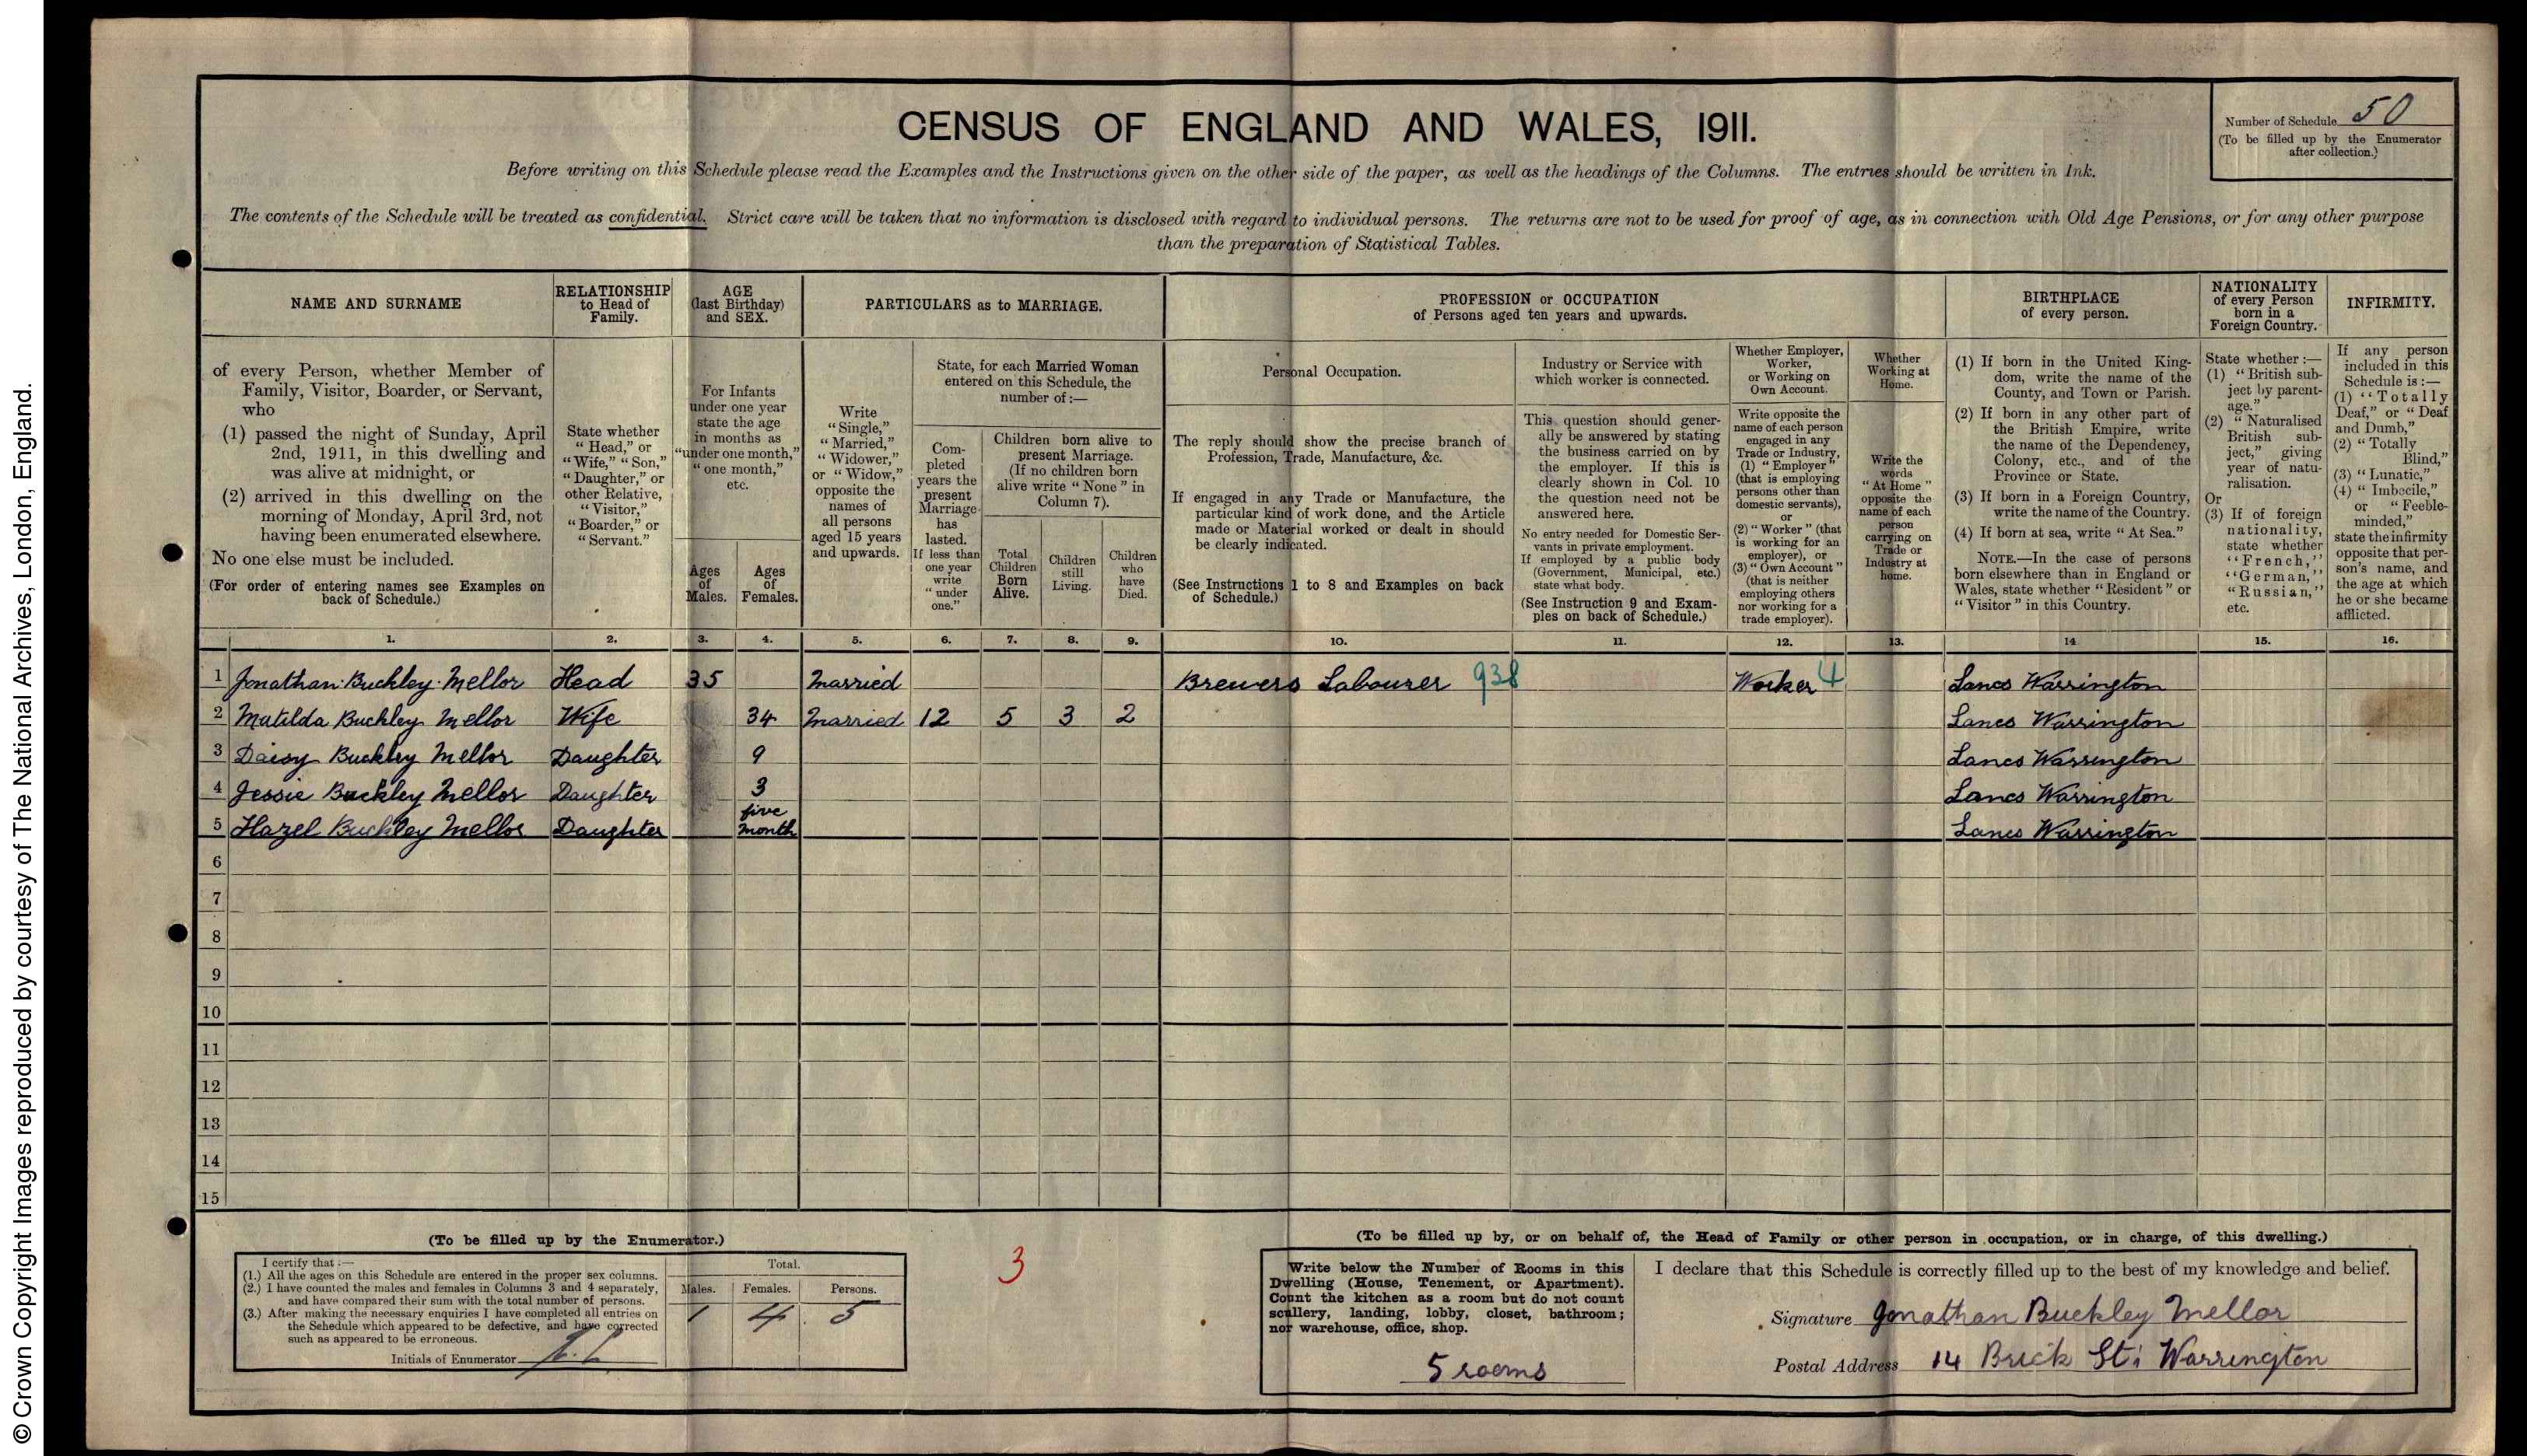 © Crown Copyright Images reproduced by courtesy of The National Archives, London, England.
CENSUS OF ENGLAND AND WALES, 1911.
Number of Schedule 50
(To be filled up by the Enumerator
after collection.)
Before writing on this Schedule please read the Examples and the Instructions given on the other side of the paper, as well as the headings of the Columns. The entries should be written in Ink.
The contents of the Schedule will be treated as confidential. Strict care will be taken that no information is disclosed with regard to individual persons. The returns are not to be used for proof of age, as in connection with Old Age Pensions, or for any other purpose
than the preparation of Statistical Tables.
NAME AND SURNAME
of every Person, whether Member of
Family, Visitor, Boarder, or Servant,
who
(1) passed the night of Sunday, April
2nd, 1911, in this dwelling and
was alive at midnight, or
(2) arrived in this dwelling on the
morning of Monday, April 3rd, not
having been enumerated elsewhere.
No one else must be included.
(For order of entering names see Examples on
back of Schedule.)
RELATIONSHIP
to Head of
Family.
State whether
"Head," or
"Wife," "Son,"
"Daughter," or
other Relative,
"Visitor,"
"Boarder," or
"Servant."
AGE
(last Birthday)
and SEX.
For Infants
under one year
state the age
in months as
"under one month,"
"one month,"
etc.
Ages
of
Males.
Ages
of
Females.
PARTICULARS as to MARRIAGE.
Write
"Single,"
"Married,"
"Widower,"
or "Widow,"
opposite the
names of
all persons
aged 15 years
and upwards.
State, for each Married Woman
entered on this Schedule, the
number of :—
Com-
pleted
years the
present
Marriage
has
lasted.
If less than
one year
write
"under
one."
Children born alive to
present Marriage.
(If no children born
alive write "None" in
Column 7).
Total
Children
Born
Alive.
Children
still
Living.
Children
who
have
Died.
PROFESSION or OCCUPATION
of Persons aged ten years and upwards.
Personal Occupation.
The reply should show the precise branch of
Profession, Trade, Manufacture, &c.
If engaged in any Trade or Manufacture, the
particular kind of work done, and the Article
made or Material worked or dealt in should
be clearly indicated.
(See Instructions 1 to 8 and Examples on back
of Schedule.)
Industry or Service with
which worker is connected.
This question should gener-
ally be answered by stating
the business carried on by
the employer. If this is
clearly shown in Col. 10
the question need not be
answered here.
No entry needed for Domestic Ser-
vants in private employment.
If employed by a public body
(Government, Municipal, etc.)
state what body.
(See Instruction 9 and Exam-
ples on back of Schedule.)
Whether Employer,
Worker,
or Working on
Own Account.
Write opposite the
name of each person
engaged in any
Trade or Industry,
(1) "Employer"
(that is employing
persons other than
domestic servants),
or
(2) "Worker" (that
is working for an
employer), or
(3) "Own Account"
(that is neither
employing others
nor working for a
trade employer).
Whether
Working at
Home.
Write the
words
"At Home"
opposite the
name of each
person
carrying on
Trade or
Industry at
home.
BIRTHPLACE
of every person.
(1) If born in the United King-
dom, write the name of the
County, and Town or Parish.
(2) If born in any other part of
the British Empire, write
the name of the Dependency,
Colony, etc., and of the
Province or State.
(3) If born in a Foreign Country,
write the name of the Country.
(4) If born at sea, write "At Sea."
NOTE.—In the case of persons
born elsewhere than in England or
Wales, state whether "Resident" or
"Visitor" in this Country.
NATIONALITY
of every Person
born in a
Foreign Country.
State whether :—
(1) "British sub-
ject by parent-
age."
(2) "Naturalised
British sub-
ject," giving
year of natu-
ralisation.
Or
(3) If of foreign
nationality,
state whether
"French,"
"German,"
"Russian,"
etc.
INFIRMITY.
If any person
included in this
Schedule is :—
(1) "Totally
Deaf," or "Deaf
and Dumb,"
(2) "Totally
Blind,"
(3) "Lunatic,"
(4) "Imbecile,"
or "Feeble-
minded,"
state the infirmity
opposite that per-
son's name, and
the age at which
he or she became
afflicted.
1. 2. 3. 4. 5. 6. 7. 8. 9. 10. 11. 12. 13. 14 15. 16.
1 Jonathan Buckley Mellor Head 35 Married Brewers Labourer 938 Worker 4 Lancs Warrington
2 Matilda Buckley Mellor Wife 34 Married 12 5 3 2 Lancs Warrington
3 Daisy Buckley Mellor Daughter 9 Lancs Warrington
4 Jessie Buckley Mellor Daughter 3 Lancs Warrington
5 Hazel Buckley Mellor Daughter five month Lancs Warrington
6
7
8
9
10
11
12
13
14
15
(To be filled up by the Enumerator.)
I certify that :—
(1.) All the ages on this Schedule are entered in the proper sex columns.
(2.) I have counted the males and females in Columns 3 and 4 separately,
and have compared their sum with the total number of persons.
(3.) After making the necessary enquiries I have completed all entries on
the Schedule which appeared to be defective, and have corrected
such as appeared to be erroneous.
Initials of Enumerator
Total.
Males. Females. Persons.
1 4 5
3
(To be filled up by, or on behalf of, the Head of Family or other person in occupation, or in charge, of this dwelling.)
Write below the Number of Rooms in this
Dwelling (House, Tenement, or Apartment).
Count the kitchen as a room but do not count
scullery, landing, lobby, closet, bathroom;
nor warehouse, office, shop.
5 rooms
I declare that this Schedule is correctly filled up to the best of my knowledge and belief.
Signature Jonathan Buckley Mellor
Postal Address 14 Brick St: Warrington